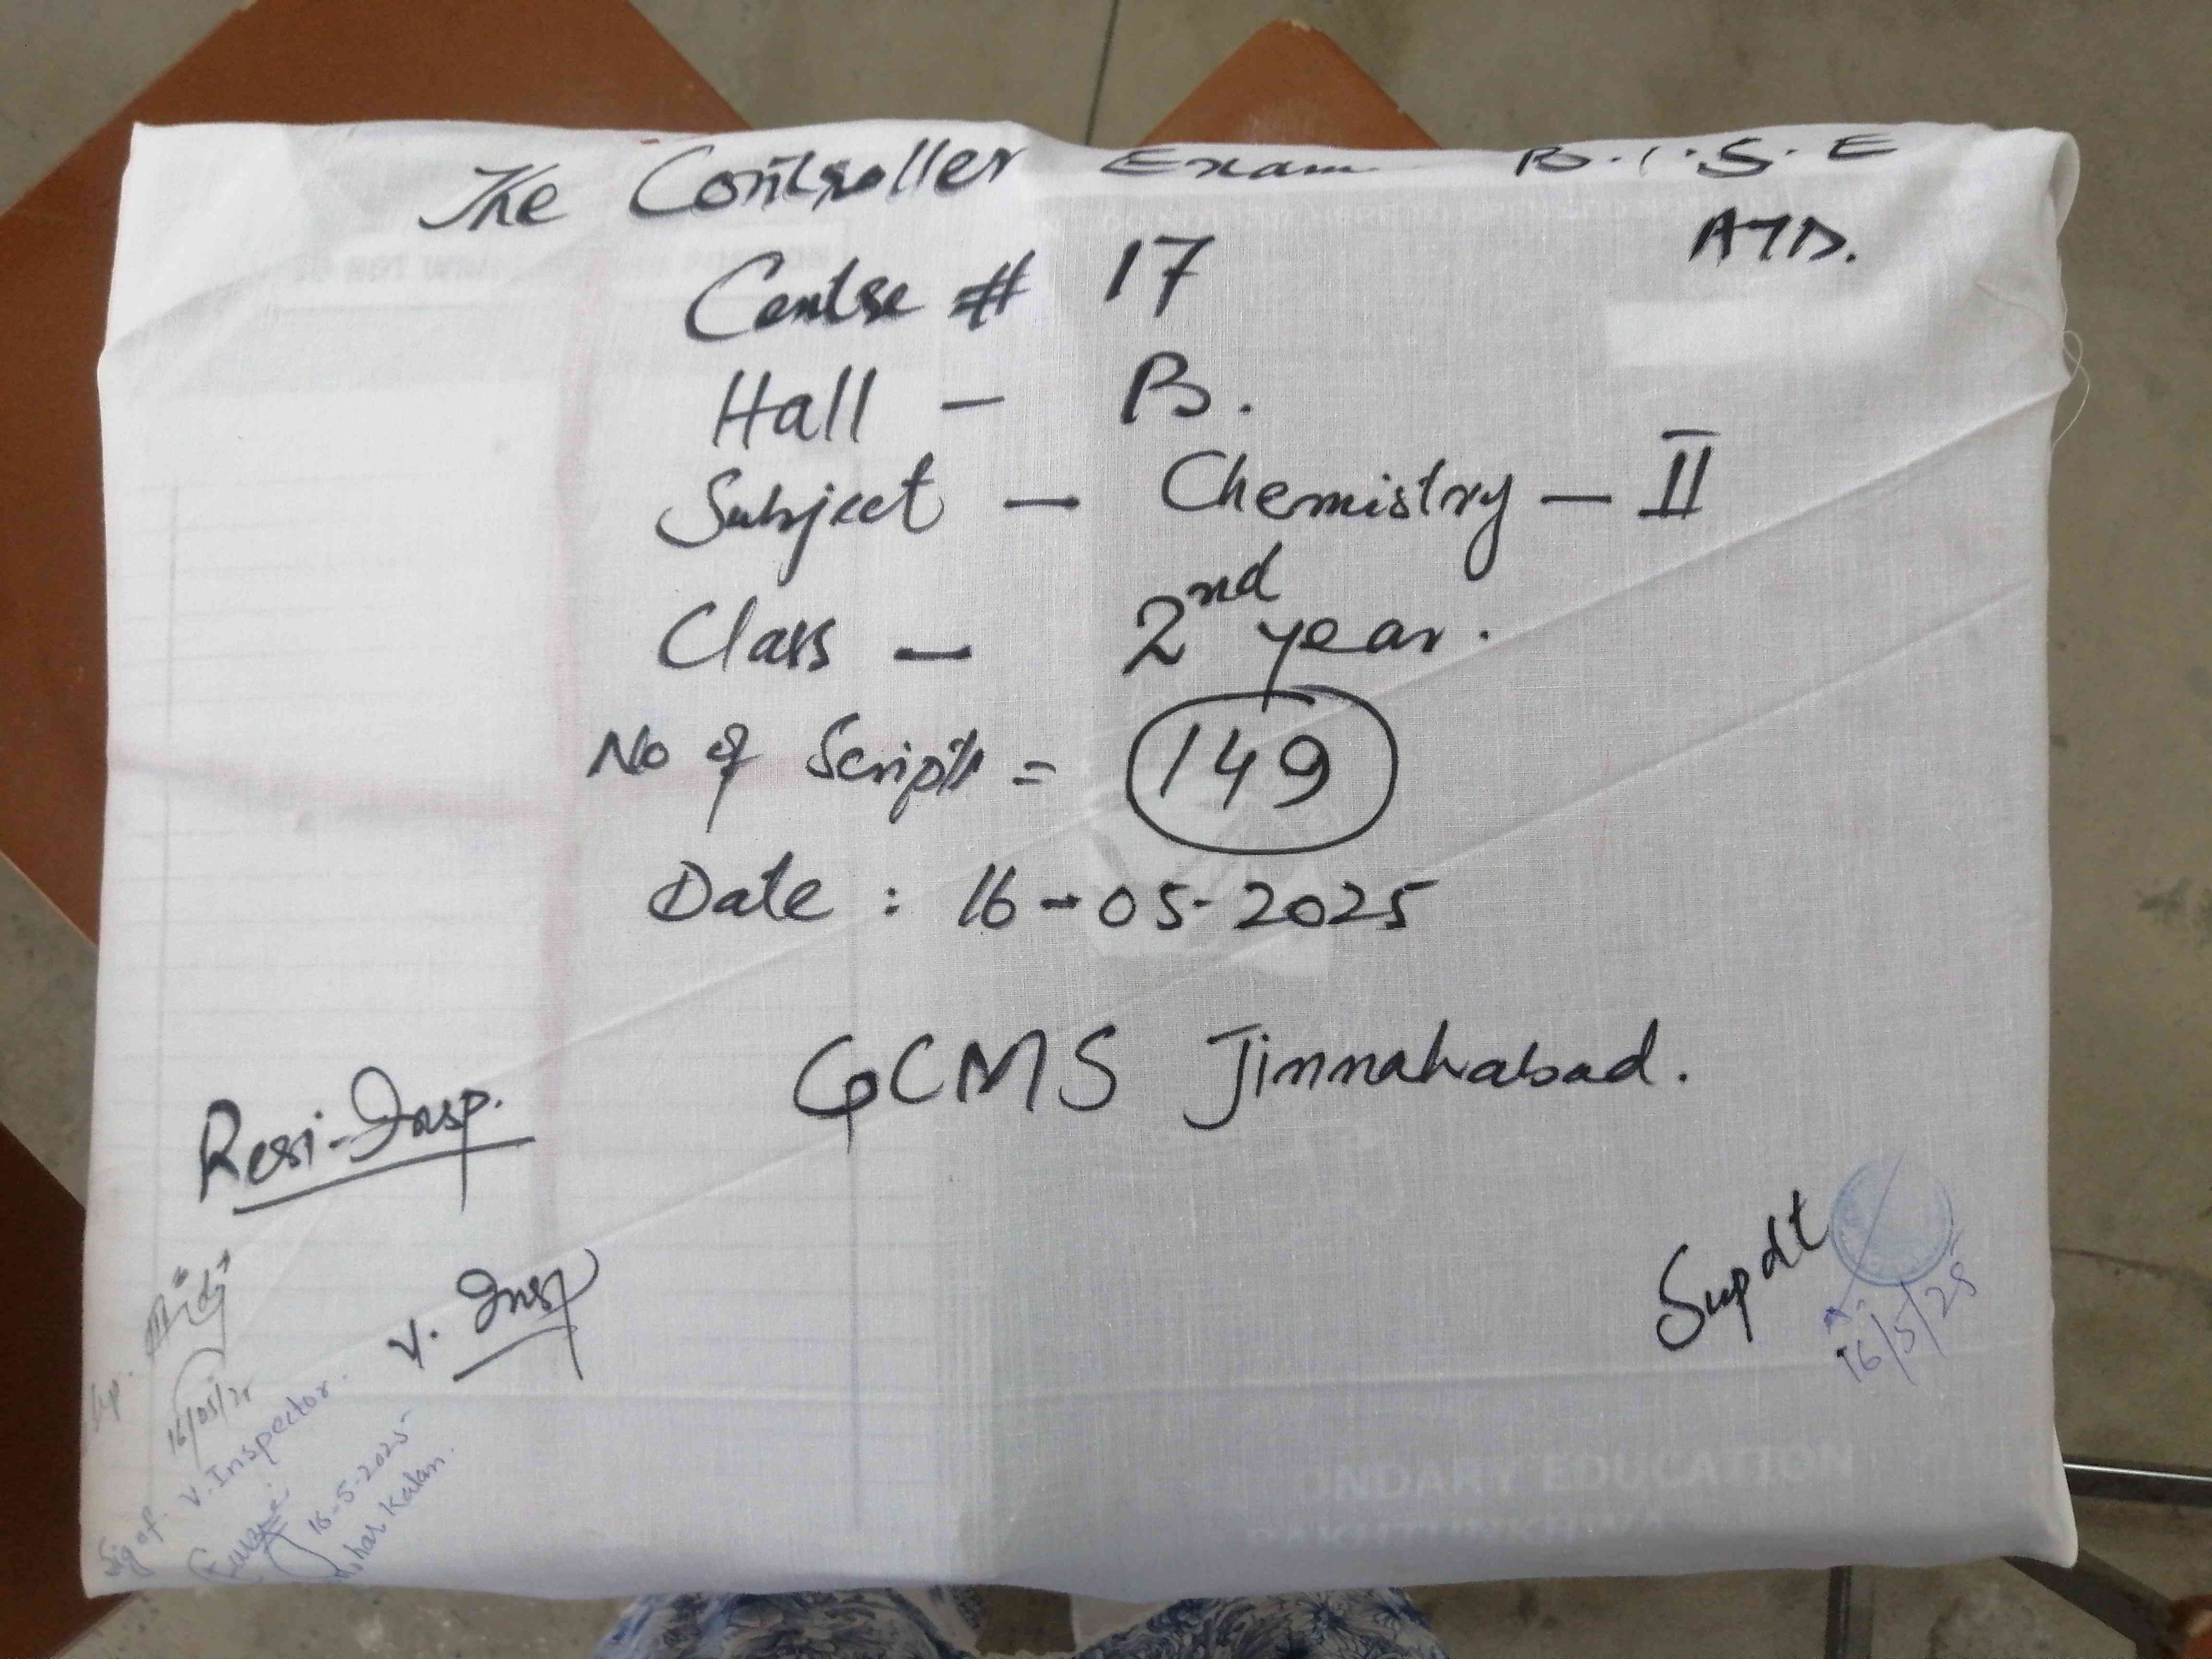 The Controller Exam B.I.S.E
ATD.
Centre # 17
Hall — B.
Subject — Chemistry — II
Class — 2nd year.
No of Scripts = 149
Date : 16-05-2025
GCMS Jinnahabad.
Resi-Insp.
V. Insp
Supdt
16/5/25
16/05/25
Sig of V. Inspector.
16-5-2025
Kalan.
ONDARY EDUCATION